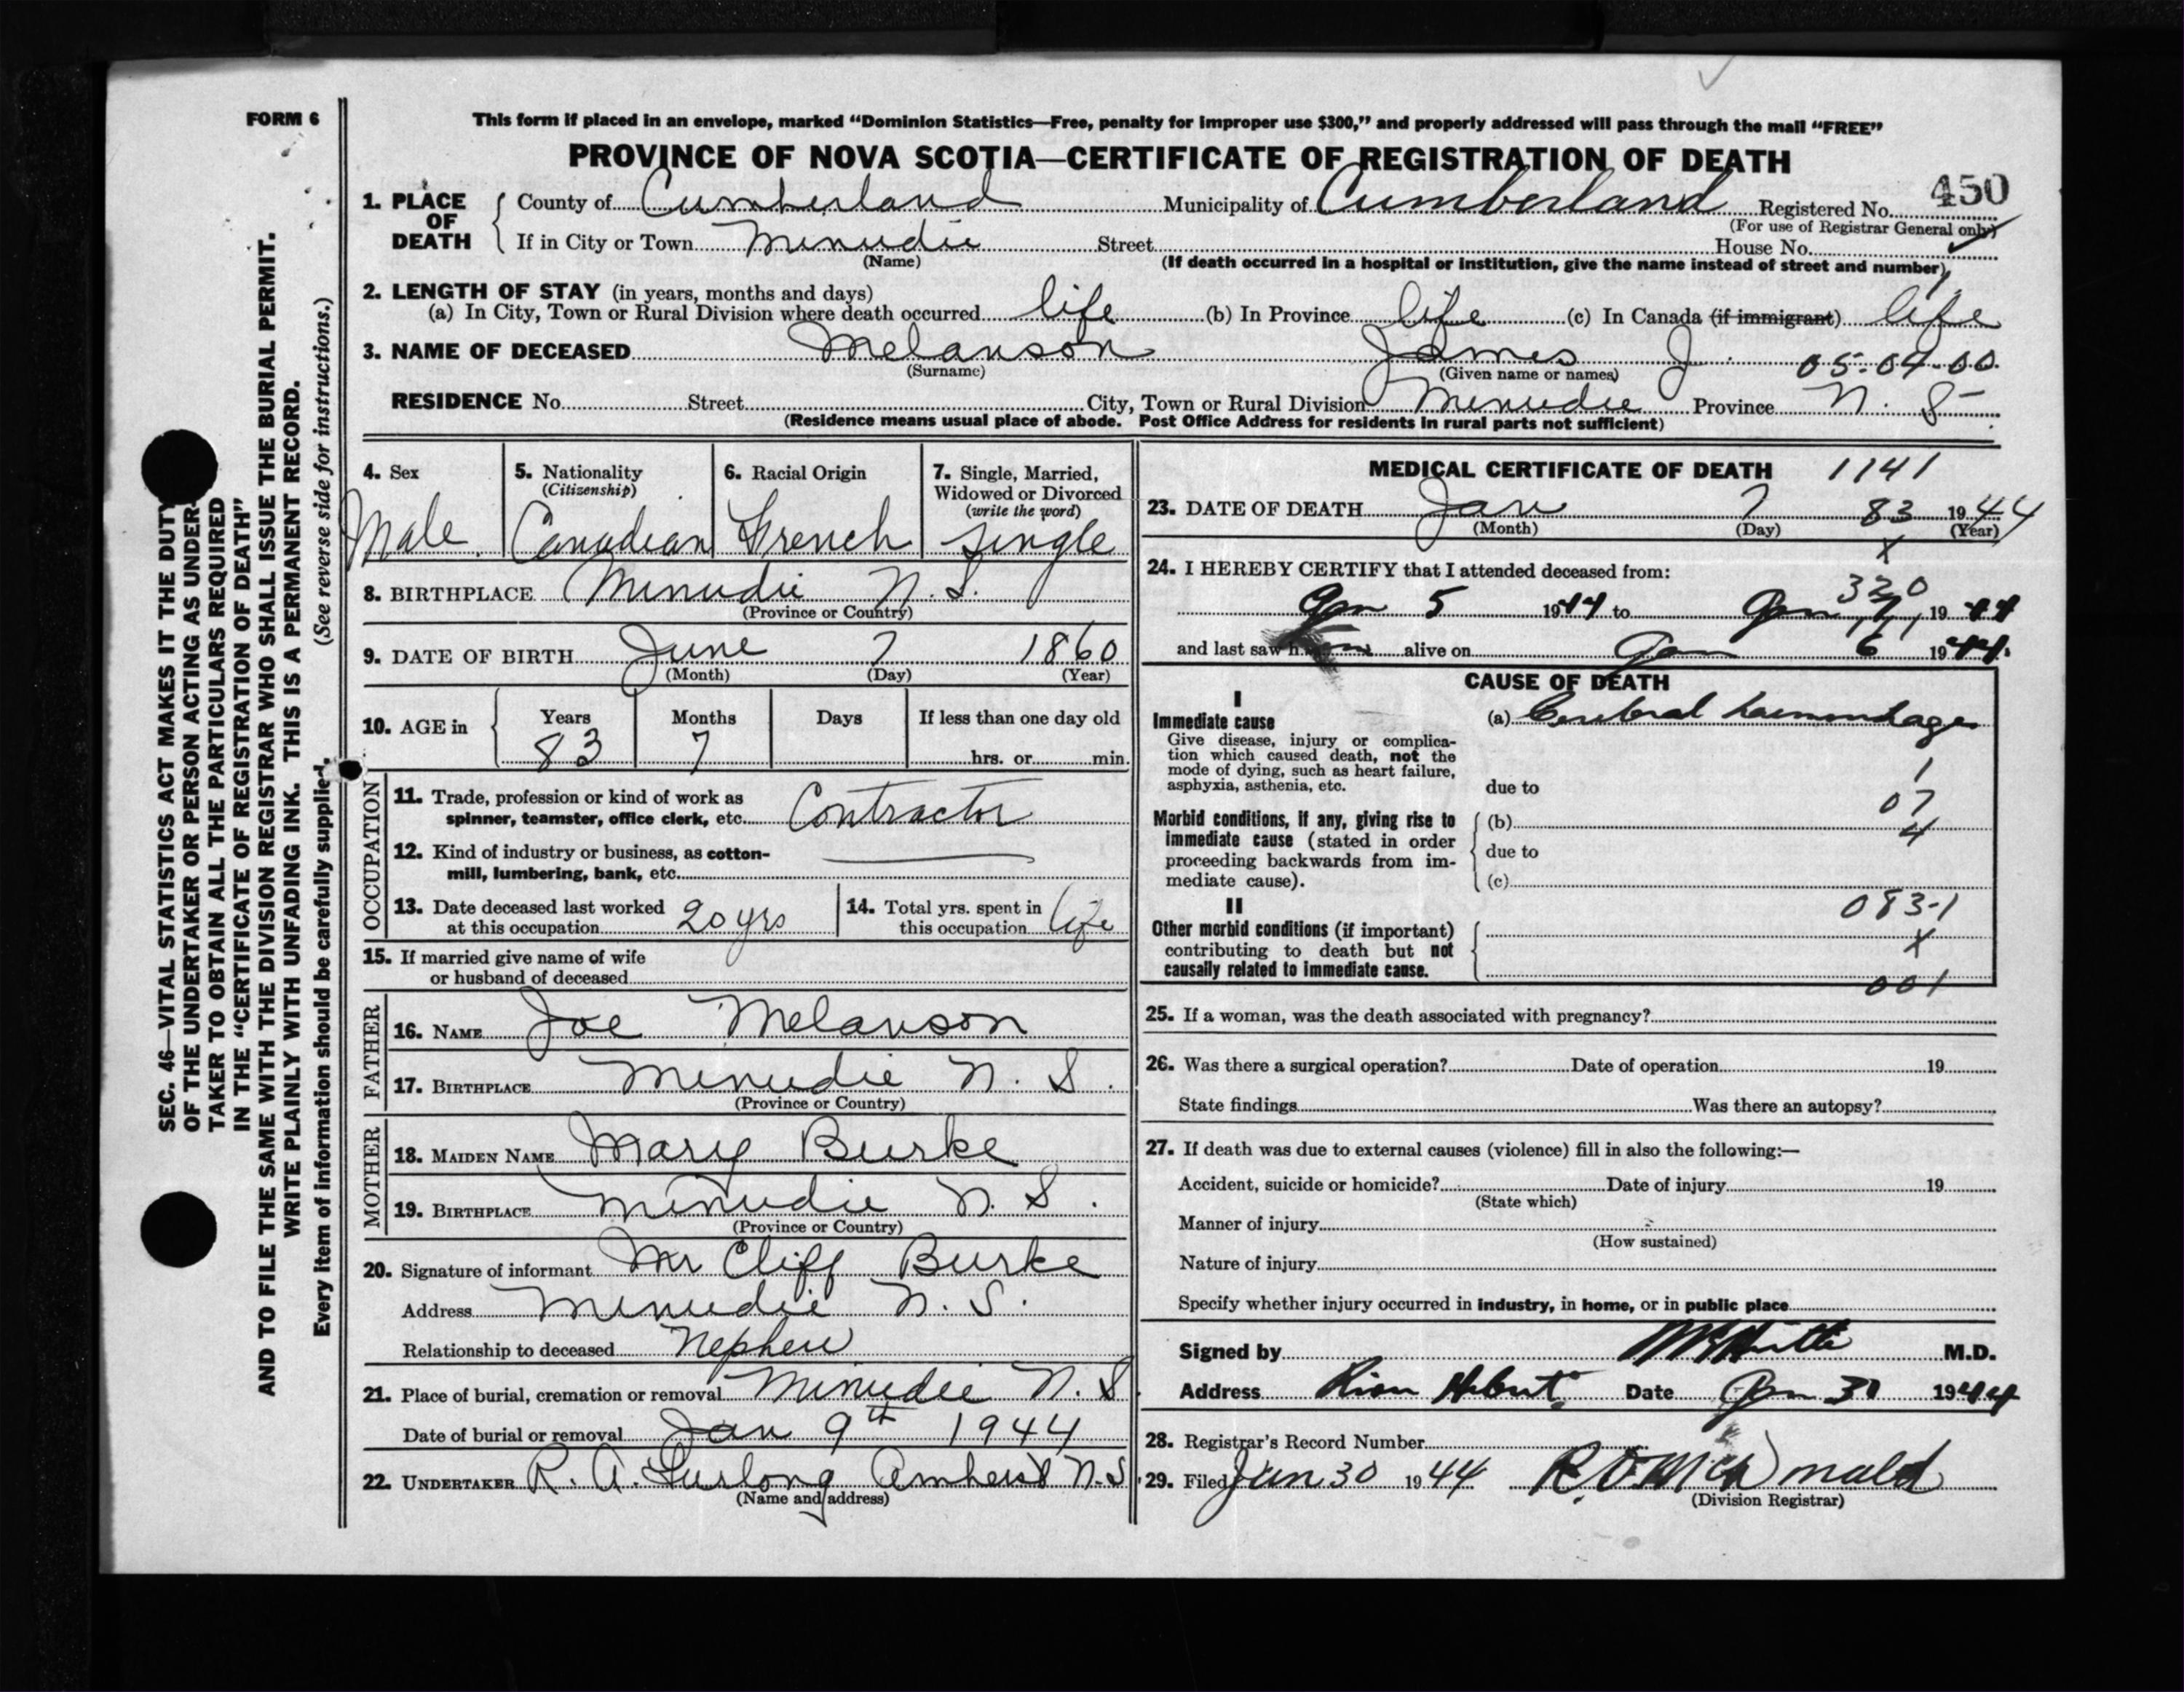 FORM 6
This form if placed in an envelope, marked "Dominion Statistics—Free, penalty for improper use $300," and properly addressed will pass through the mail "FREE"
PROVINCE OF NOVA SCOTIA—CERTIFICATE OF REGISTRATION OF DEATH
450
1. PLACE OF DEATH
County of Cumberland Municipality of Cumberland Registered No.
(For use of Registrar General only)
If in City or Town Minudie Street House No.
(Name) (If death occurred in a hospital or institution, give the name instead of street and number)
2. LENGTH OF STAY (in years, months and days)
(a) In City, Town or Rural Division where death occurred life (b) In Province life (c) In Canada (if immigrant) life
3. NAME OF DECEASED Melanson James J. 05-04-00
(Surname) (Given name or names)
RESIDENCE No. Street City, Town or Rural Division Minudie Province N. S.
(Residence means usual place of abode. Post Office Address for residents in rural parts not sufficient)
4. Sex
Male
5. Nationality
(Citizenship)
Canadian
6. Racial Origin
French
7. Single, Married,
Widowed or Divorced
(write the word)
single
8. BIRTHPLACE Minudie N. S.
(Province or Country)
9. DATE OF BIRTH June 7 1860
(Month) (Day) (Year)
10. AGE in Years Months Days If less than one day old
83 7 hrs. or min.
OCCUPATION
11. Trade, profession or kind of work as
spinner, teamster, office clerk, etc. Contractor
12. Kind of industry or business, as cotton-
mill, lumbering, bank, etc.
13. Date deceased last worked
at this occupation 20 yrs
14. Total yrs. spent in
this occupation life
15. If married give name of wife
or husband of deceased
FATHER
16. NAME Joe Melanson
17. BIRTHPLACE Minudie N. S.
(Province or Country)
MOTHER
18. MAIDEN NAME Mary Burke
19. BIRTHPLACE Minudie N. S.
(Province or Country)
20. Signature of informant Mr Cliff Burke
Address Minudie N. S.
Relationship to deceased Nephew
21. Place of burial, cremation or removal Minudie N. S.
Date of burial or removal Jan 9th 1944
22. UNDERTAKER R. A. Furlong Amherst N.S
(Name and address)
MEDICAL CERTIFICATE OF DEATH 1141
23. DATE OF DEATH Jan 7 83 1944
(Month) (Day) (Year)
X
24. I HEREBY CERTIFY that I attended deceased from:
320
Jan 5 1944 to Jan 7, 1944
and last saw him alive on Jan 6 1944.
CAUSE OF DEATH
I
Immediate cause (a) Cerebral haemorrhage
Give disease, injury or complica-
tion which caused death, not the
mode of dying, such as heart failure,
asphyxia, asthenia, etc. due to
1
07
4
Morbid conditions, if any, giving rise to (b)
immediate cause (stated in order due to
proceeding backwards from im-
mediate cause). (c)
083-1
II
Other morbid conditions (if important)
X
contributing to death but not
causally related to immediate cause.
001
25. If a woman, was the death associated with pregnancy?
26. Was there a surgical operation? Date of operation 19
State findings Was there an autopsy?
27. If death was due to external causes (violence) fill in also the following:—
Accident, suicide or homicide? Date of injury 19
(State which)
Manner of injury
(How sustained)
Nature of injury
Specify whether injury occurred in industry, in home, or in public place
Signed by M.D.
Address River Hebert Date Jan 30 1944
28. Registrar's Record Number
29. Filed Jan 30 1944 R. O. McDonald
(Division Registrar)
SEC. 46—VITAL STATISTICS ACT MAKES IT THE DUTY
OF THE UNDERTAKER OR PERSON ACTING AS UNDER-
TAKER TO OBTAIN ALL THE PARTICULARS REQUIRED
IN THE "CERTIFICATE OF REGISTRATION OF DEATH"
AND TO FILE THE SAME WITH THE DIVISION REGISTRAR WHO SHALL ISSUE THE BURIAL PERMIT.
WRITE PLAINLY WITH UNFADING INK. THIS IS A PERMANENT RECORD.
Every item of information should be carefully supplied. (See reverse side for instructions.)